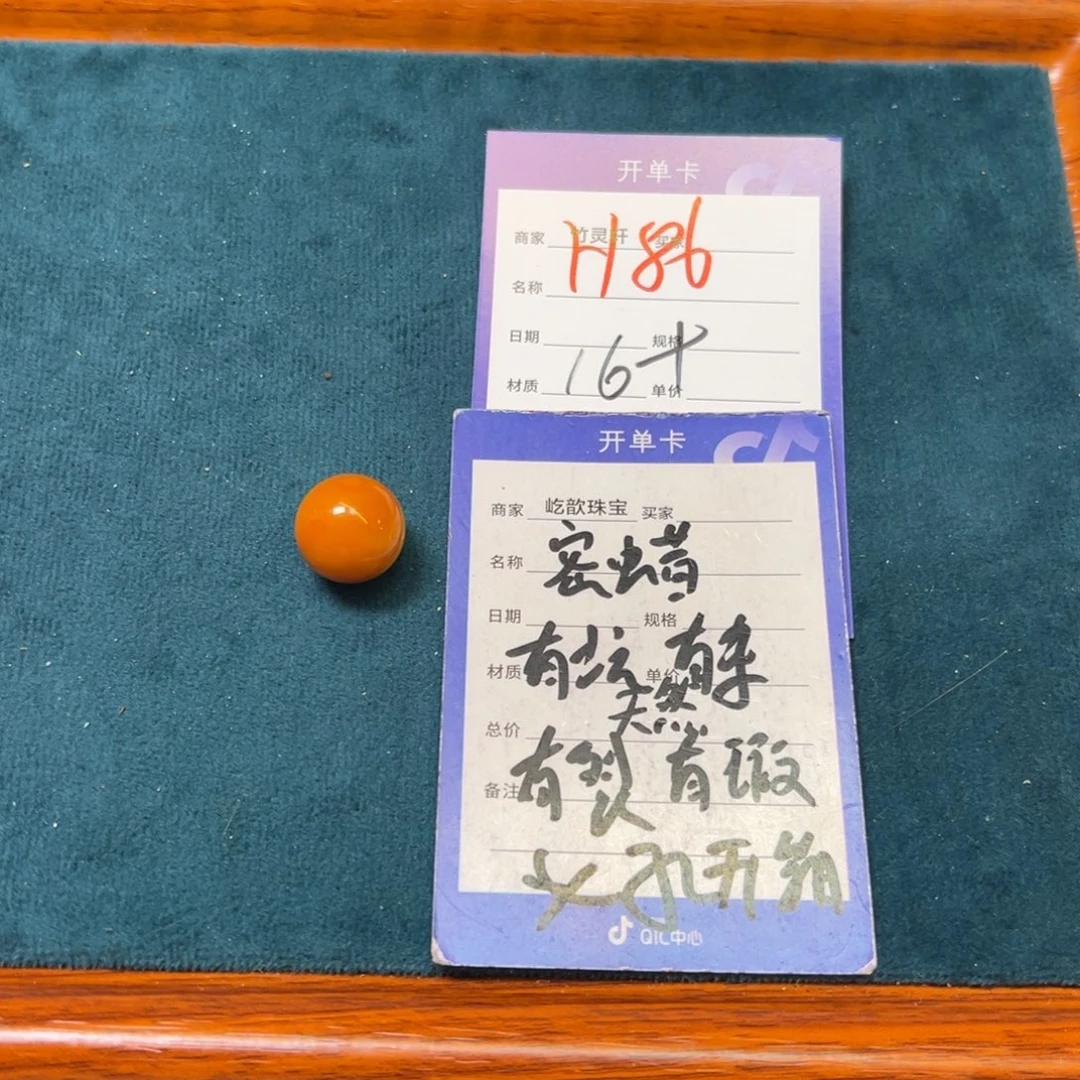 开单卡
商家 竹灵轩 买家
H86
名称
日期 规格
16+
材质 单价
开单卡
商家 屹歆珠宝 买家
名称 密蜡
日期 规格
材质 有坑 有来 单价
天然
总价
备注 有裂 有瑕
孔无
QIC中心